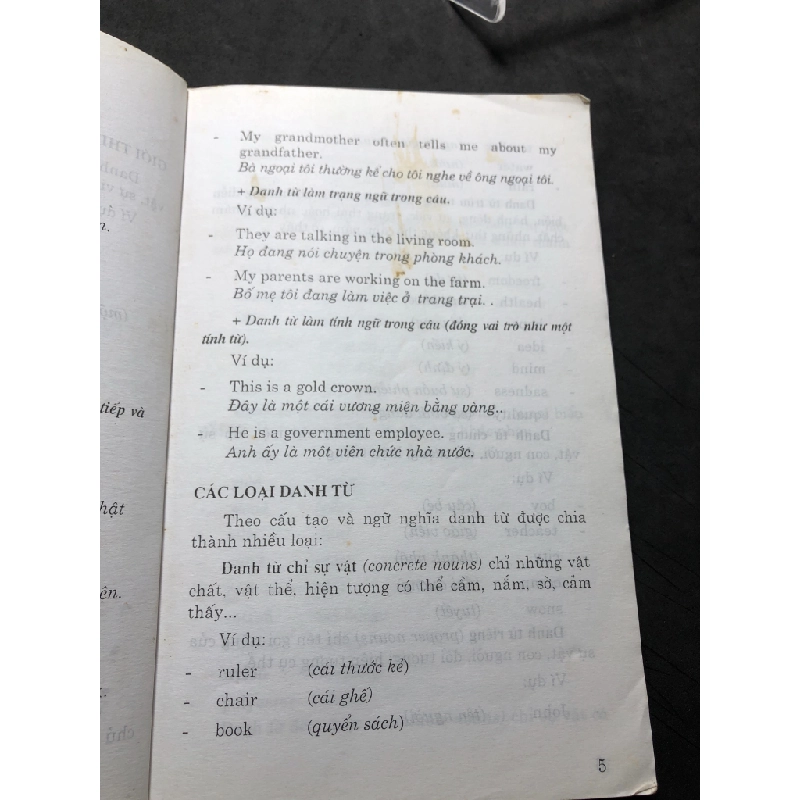 - My grandmother often tells me about my
grandfather.
Bà ngoại tôi thường kể cho tôi nghe về ông ngoại tôi.
+ Danh từ làm trạng ngữ trong câu.
Ví dụ:
- They are talking in the living room.
Họ đang nói chuyện trong phòng khách.
- My parents are working on the farm.
Bố mẹ tôi đang làm việc ở trang trại. .
+ Danh từ làm tính ngữ trong câu (đóng vai trò như một
tính từ).
Ví dụ:
- This is a gold crown.
Đây là một cái vương miện bằng vàng..
- He is a government employee.
Anh ấy là một viên chức nhà nước.
CÁC LOẠI DANH TỪ
Theo cấu tạo và ngữ nghĩa danh từ được chia
thành nhiều loại:
Danh từ chỉ sự vật (concrete nouns) chỉ những vật
chất, vật thể, hiện tượng có thể cầm, nắm, sờ, cảm
thấy...
Ví dụ:
- ruler (cái thước kẻ)
- chair (cái ghế)
- book (quyển sách)
5
tiếp và